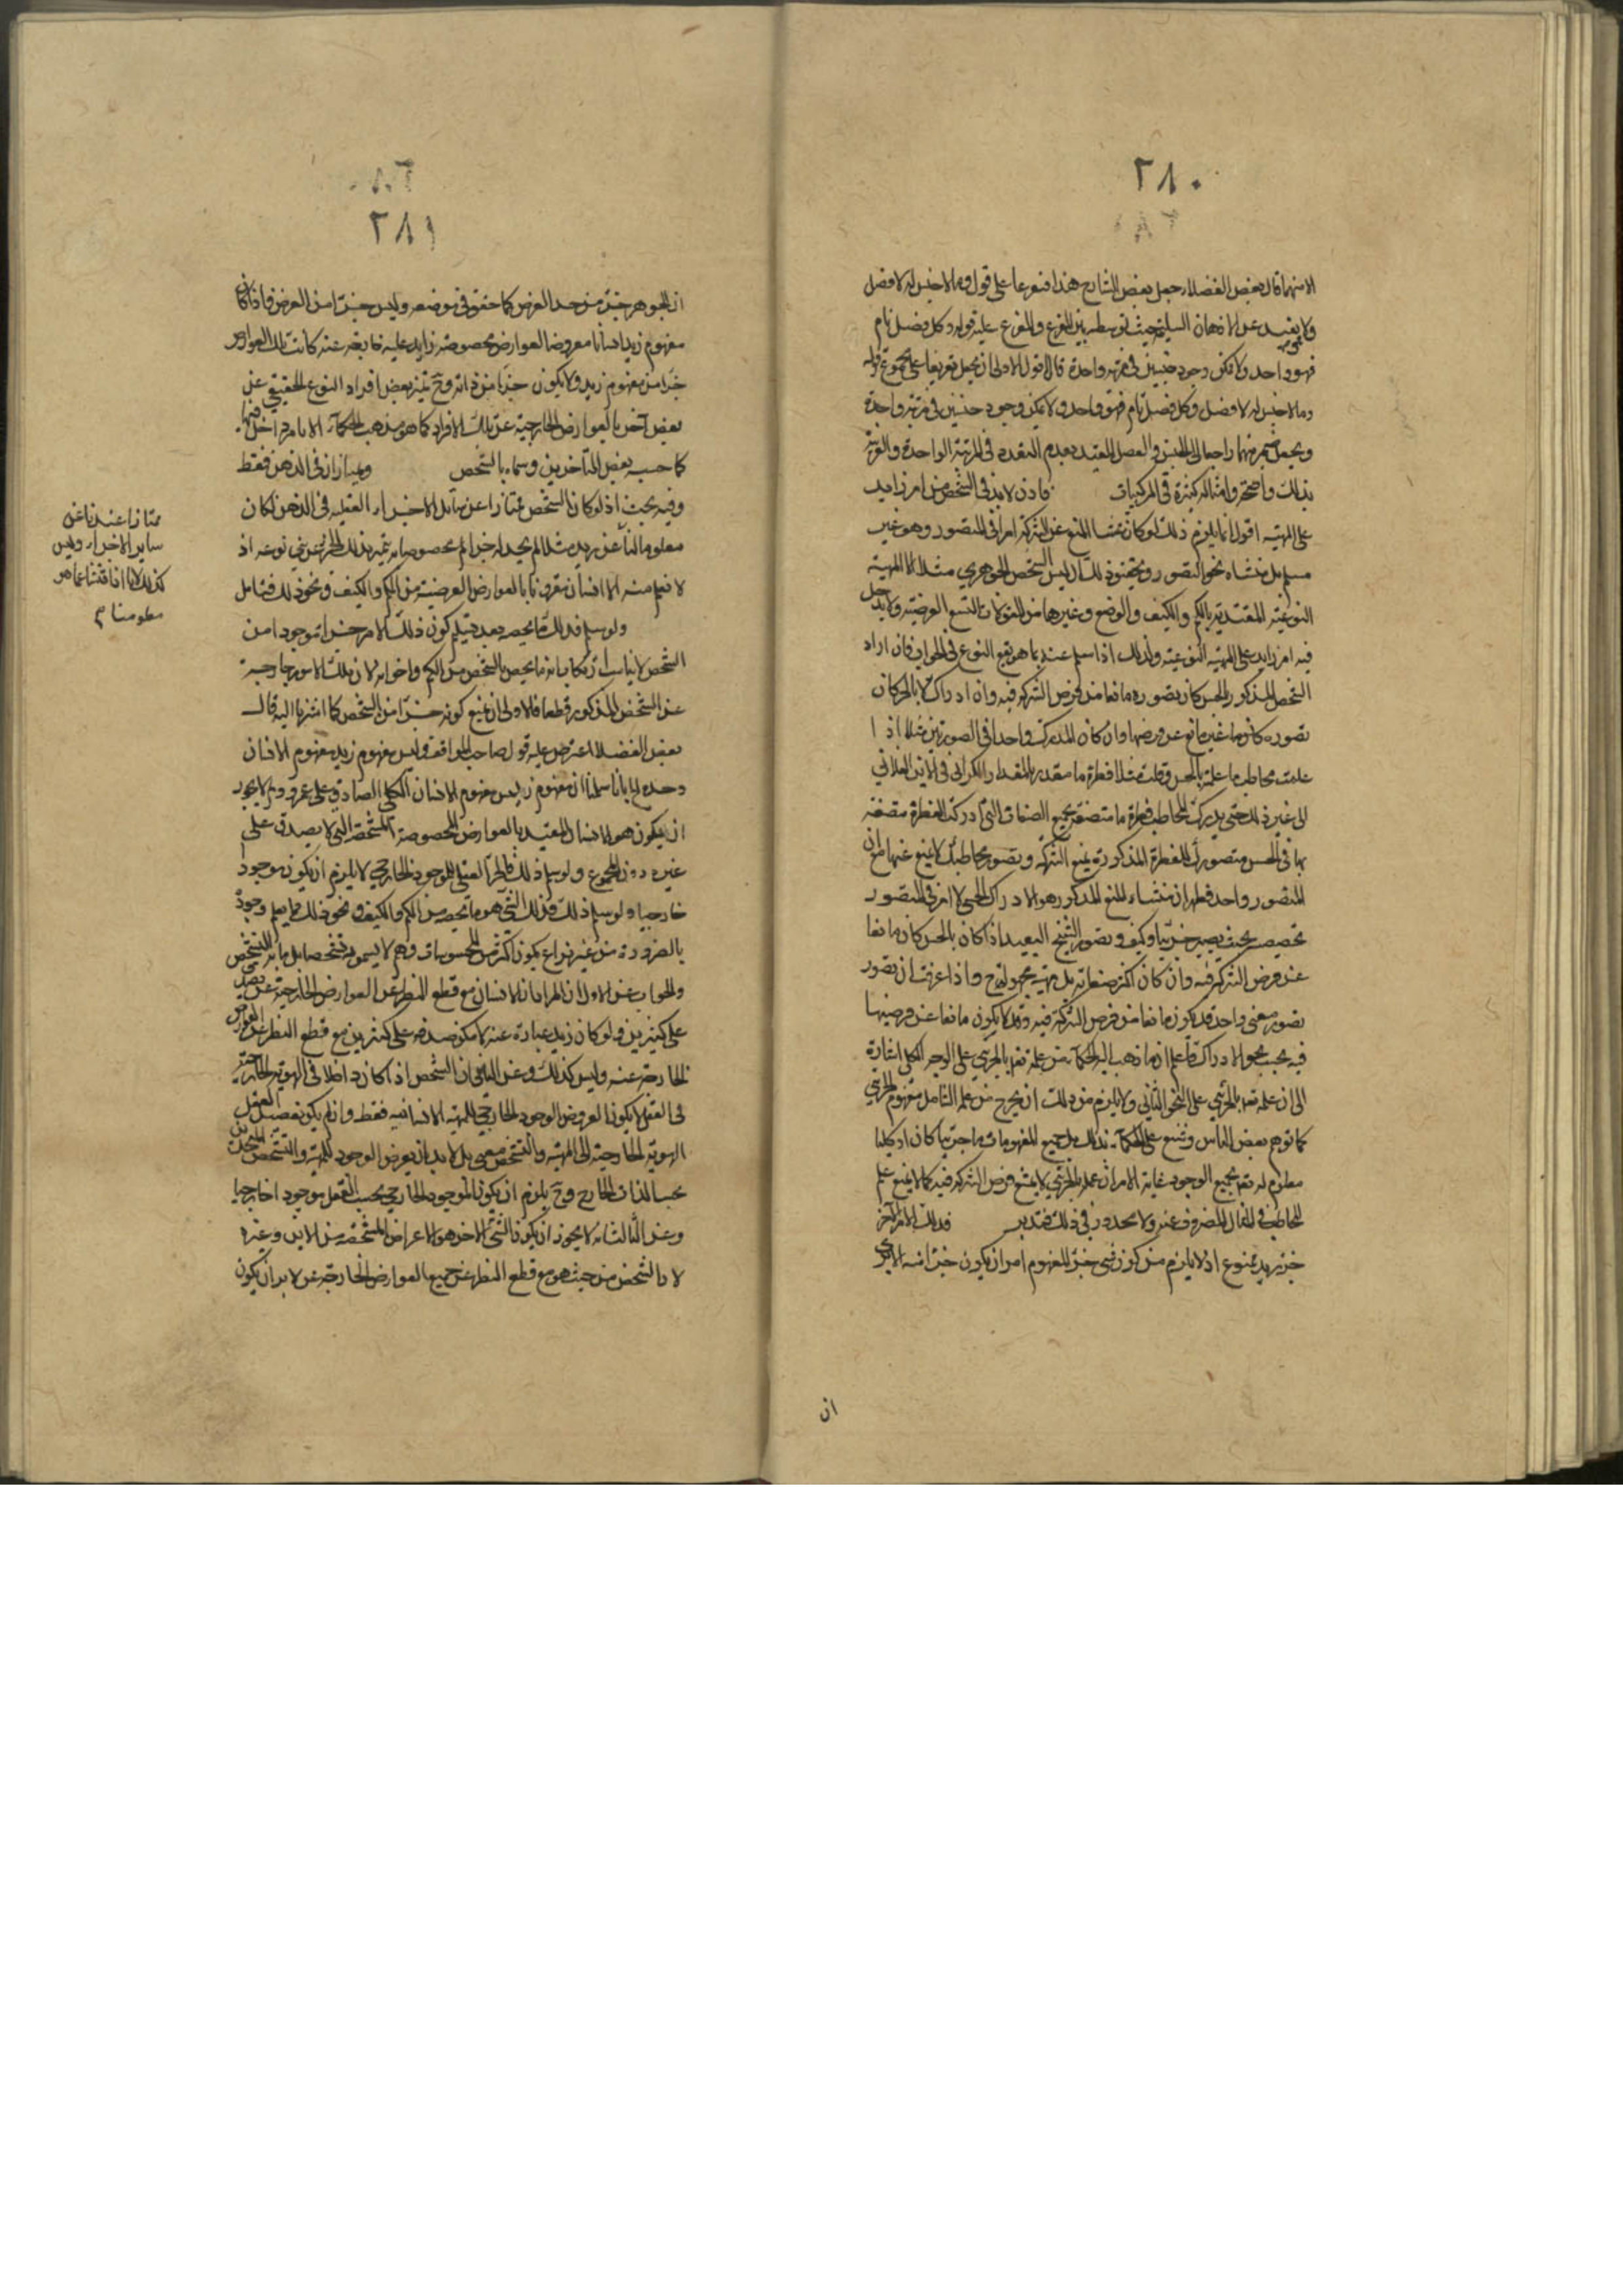 ٢٨٠
قال بعض الفضلاء جعل بعض الشارح هذا فنوعا على قول وما لا جنس له لا فصل
ولا يبعد عن الاذهان السليمة حيث توسطه بين الفرع والمفرع عليه قوله وكل فصل تام
فهو واحد ولا يمكن وجود جنسين في مرتبة واحدة قال اقول الاولى ان يجعل تفريعا على مجموع قوله
وما لا جنس له لا فصل وكل فصل تام فهو واحد ولا يمكن وجود جنسين في مرتبة واحدة
ويجعل ضمير منهما راجعا الى الجنس والفصل المقيد بعدم التعدد في المرتبة الواحدة والقرينة
بذلك واضحة وامثاله كثيرة في المركبات فاذن لا بد في الشخص من امر زايد
على المهية اقول انما يلزم ذلك لو كان منشأ المنع عن الشركة امرا في المتصور وهو غير
مسلم بل منشاه نحو التصور وتحقيق ذلك ان ليس الشخص الجوهري مثلا الا المهية
النوعية المقيدة بالكم والكيف والوضع وغيرها من المقولات التسع العرضية ولا يدخل
فيه امر زايد على المهية النوعية ولذلك اذا سئل عنه بما هو يقع النوع في الجواب فان اراد
الشخص المذكور بالحس كان تصوره مانعا من فرض الشركة فيه وان ادراك لا بالحس كان
تصوره كانوها غير مانع عن فرضها وان كان المدرك واحدا في الصورتين مثلا اذا
علمت مخاطبا علمته بالحس وقلت مثلا قطرة ما مقدرة بالمقدار الكذائي في الاين الفلاني
الى غير ذلك حتى يدرك المخاطب قطرة ما متصفة بجميع الصفات التي ادركت القطرة متصفة
بها في الحس متصورك القطرة المذكورة يمنع الشركة وتصور مخاطبك لا يمنع عنها مع ان
المتصور واحد فظهر ان منشاء المنع المذكور هو الادراك الحسي لا امر في المتصور
تخصيصه بحيث يصير جزئيا وكيف وتصور الشبح البعيد اذا كان بالحس كان مانعا
عن فرض الشركة فيه وان كان اكثر صفاته بل مهيته مجهولة ح واذا عرفت ان تصور
تصور معنى واحد قد يكون مانعا من فرض الشركة فيه وقد لا يكون مانعا عن فرضها
فيه بحسب نحو الادراك فاعلم ان ما ذهب اليه الحكماء من علمه تعالى بالجزئي على الوجه الكلي اشارة
الى ان علمه تعالى بالجزئي على النحو الثاني ولا يلزم من ذلك ان يخرج من علمه الشامل مفهوم الجزئي
كما توهم بعض الناس وشنع على الحكماء بذلك بل جميع المفهومات ما جزئيا كان او كليا
معلوم له تعالى بجميع الوجود غاية الامر ان علمه بالجزئي لا يمنع فرض الشركة فيه كما لا يمنع علم
المخاطب في المثال المفروض عنه ولا محذور في ذلك فتدبر فذلك الامر الآخر
جزء زيد ممنوع اذ لا يلزم من كون شيء جزء المفهوم امر ان يكون جزء منه الا يرى
ان
٢٨١
ان الجوهر جزء من حد العرض كما حقق في موضعه وليس جزءا من العرض فاذا كان
مفهوم زيد انسانا معروضا لعوارض مخصوصة زايد عليه خارجة عنه كانت تلك العوارض
جزءا من مفهوم زيد ولا يكون جزءا من ذاته وح يتميز بعض افراد النوع الحقيقي عن
بعض آخر بالعوارض الخارجية عن تلك الافراد كما هو مذهب الحكماء لا بامر داخل فيها
كما حسبه بعض المتأخرين وسماه بالتشخص ويمتازان في الذهن فقط
وفيه بحث اذ لو كان الشخص ممتازا عن ساير الاجزاء العقلية في الذهن لكان
معلوما لنا عن زيد مثلا لم يجد له جزءا مخصوصا به يتميز بذلك الجزء عن بني نوعه اذ
لا نعلم منه الا انسان مقرونا بالعوارض العرضية من الكم والكيف ونحو ذلك فتامل
ولو سلم فذلك ما يخصه بعد تسليم كون ذلك الامر جزءا موجودا من
الشخص لا يناسب ارتكاب انه ما يخص بالشخص من الكم واخواته لان تلك الامور خارجة
عن الشخص المذكور قطعا فالاولى ان يمنع كونه جزءا من الشخص كما اشرنا اليه قال
بعض الفضلاء اعترض عليه قول صاحب المواقف وليس مفهوم زيد مفهوم الانسان
وحده لنا بانا سلمنا ان مفهوم زيد ليس مفهوم الانسان الكلي الصادق على عمرو ولم لا يجوز
ان يكون هو الانسان المقيد بالعوارض المخصوصة المشخصة التي لا يصدق على
غيره دون المجموع ولو سلم ذلك فالجزء العقلي للموجود الخارجي لا يلزم ان يكون موجودا
خارجيا ولو سلم ذلك فذلك الشيء هو ما يخصه من الكم والكيف ونحو ذلك مما يعلم وجوده
بالضرورة من غير نزاع بكون اكثرهن المحسوسات وهم لا يسمونه تشخصا بل ما به التشخص
والجواب عن الاول ان المراد ان الانسان مع قطع النظر عن العوارض الخارجية عنه يصدق
على كثيرين فلو كان زيد عبارة عنه لامكن صدقه على كثيرين مع قطع النظر عن العوارض
الخارجة عنه وليس كذلك وعن الثاني ان الشخص اذا كان داخلا في الهوية الخارجية
في العقل لا يكون المعروض الوجود الخارجي للمهية الانسانية فقط وان لم يكن تفصيل العقل
الهوية الخارجية الى المهية والتشخص معنى بل لا بد ان يعرض الوجود للمهية والتشخص المتحدين
بحسب الذات الخارج وح يلزم ان يكون الموجود الخارجي بحسب العقل موجودا خارجيا
وعن الثالث انه لا يجوز ان يكون الشيء الاخر هو الاعراض المشخصة من الاين وغيره
لان الشخص من حيث هو مع قطع النظر عن جميع العوارض الخارجة عن لا بد ان يكون
ممتازا عندنا عن
ساير الاجزاء وليس
كذلك لانا اذا فتشنا عما هو
معلومنا م